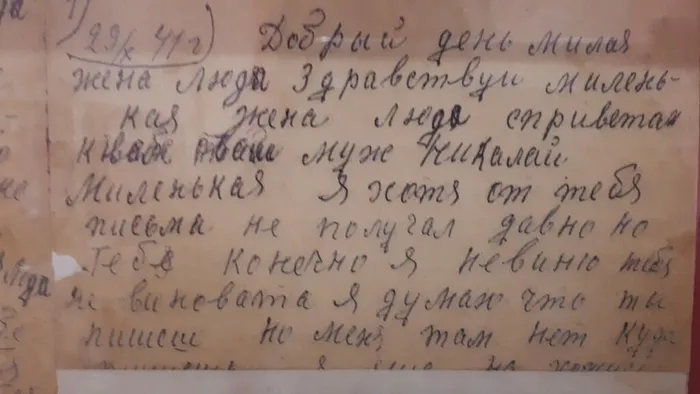 1)
29/X 41 г) Добрый день милая
жена Люда Здравствуй милень-
кая жена Люда сприветам
к вам твой муж Никалай
Миленькая Я хотя от тебя
письма не получал давно но
Тебя конечно я невиню тебя
не виновата Я думаю что ты
пишеш но меня там нет куда